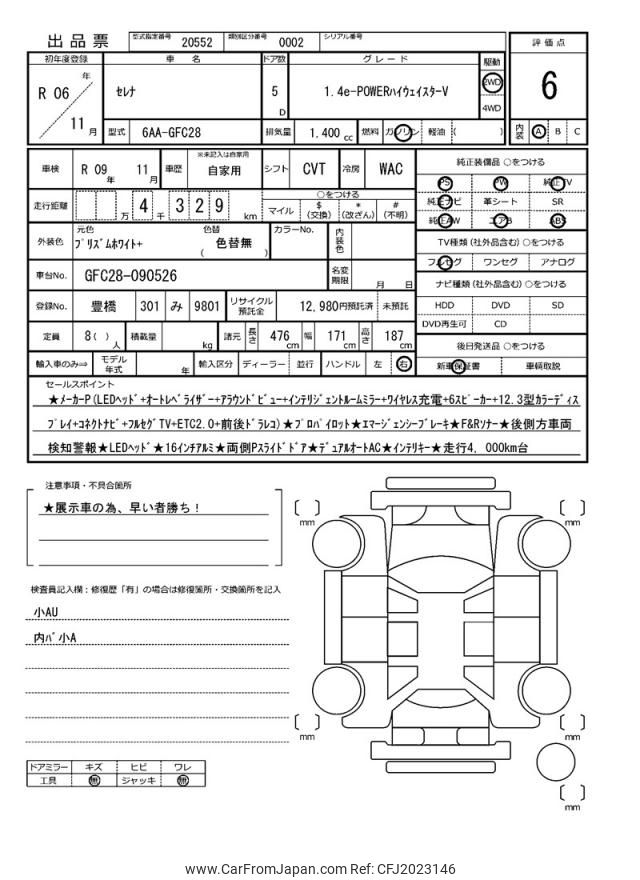 出品票 型式指定番号 20552 類別区分番号 0002 シリアル番号
評価点
6
内装 A B C
初年度登録 車名 ドア数 グレード 駆動
R 06 年 11 月 セレナ 5 D 1.4e-POWERハイウェイスターV 2WD 4WD
型式 6AA-GFC28 排気量 1.400 cc 燃料 ガソリン 軽油 ( )
車検 R 09 年 11 月 車歴 ※未記入は自家用 自家用 シフト CVT 冷房 WAC
走行距離 万 4 千 3 2 9 km ○をつける マイル $ (交換) * (改ざん) # (不明)
外装色 元色 プリズムホワイト+ 色替 ( 色替無 ) カラーNo. 内装色
車台No. GFC28-090526 名変期限 月 日
登録No. 豊橋 301 み 9801 リサイクル預託金 12,980円預託済 未預託
定員 8( ) 人 積載量 kg 諸元 長さ 476 cm 幅 171 cm 高さ 187 cm
輸入車のみ⇒ モデル年式 年 輸入区分 ディーラー 並行 ハンドル 左 右
純正装備品 ○をつける
PS PW 純正TV
純正ナビ 革シート SR
純正AW エアB ABS
TV種類 (社外品含む) ○をつける
フルセグ ワンセグ アナログ
ナビ種類 (社外品含む) ○をつける
HDD DVD SD
DVD再生可 CD
後日発送品 ○をつける
新車保証書 車輌取説
セールスポイント
★メーカーP(LEDヘッド+オートレベライザー+アラウンドビュー+インテリジェントルームミラー+ワイヤレス充電+6スピーカー+12.3型カラーディス
プレイ+コネクトナビ+フルセグTV+ETC2.0+前後ドラレコ)★プロパイロット★エマージェンシーブレーキ★F&Rソナー★後側方車両
検知警報★LEDヘッド★16インチアルミ★両側Pスライドドア★デュアルオートAC★インテリキー★走行4,000km台
注意事項・不具合箇所
★展示車の為、早い者勝ち!
検査員記入欄:修復歴「有」の場合は修復箇所・交換箇所を記入
小AU
内バ小A
ドアミラー キズ ヒビ ワレ
工具 無 ジャッキ 無
mm
mm
mm
mm
mm
www.CarFromJapan.com Ref: CFJ2023146